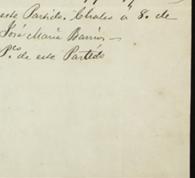 este Partido. Chales á 8. de
José María Barrios
P.ro de este Partido